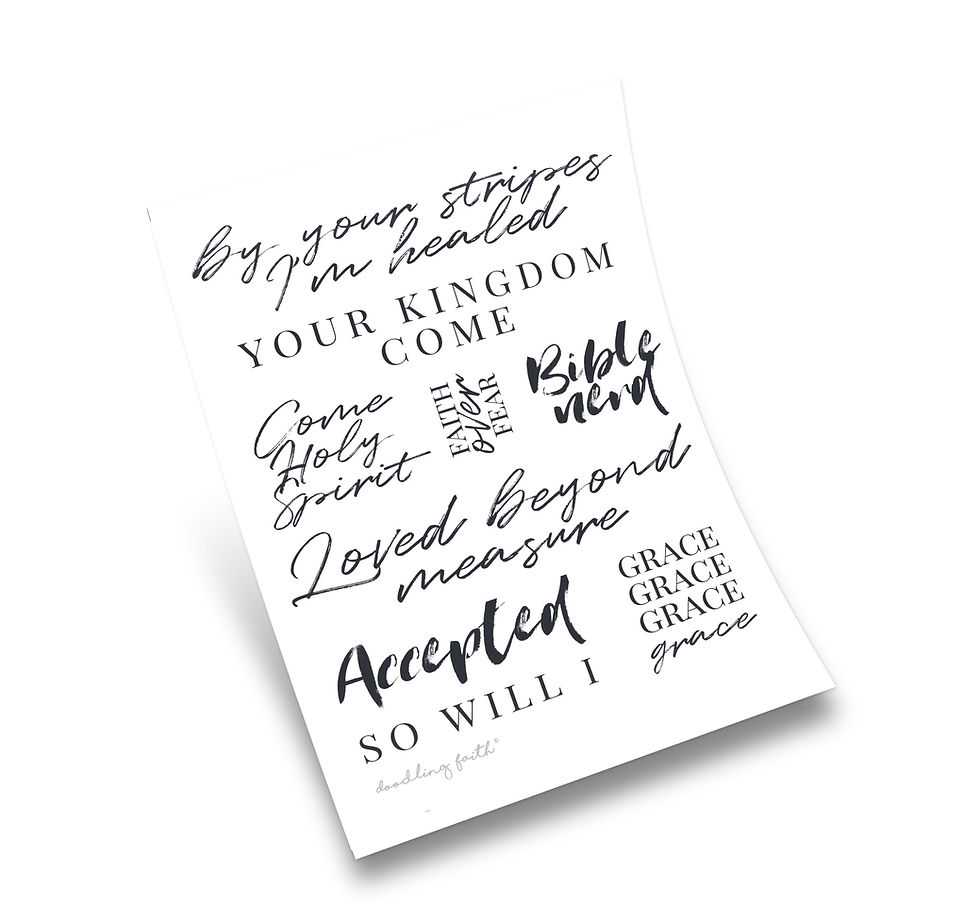 By your stripes
I'm healed
YOUR KINGDOM
COME
Come
Holy
Spirit
FAITH
over
FEAR
Bible
nerd
Loved beyond
measure
Accepted
GRACE
GRACE
GRACE
grace
SO WILL I
doodling faith®